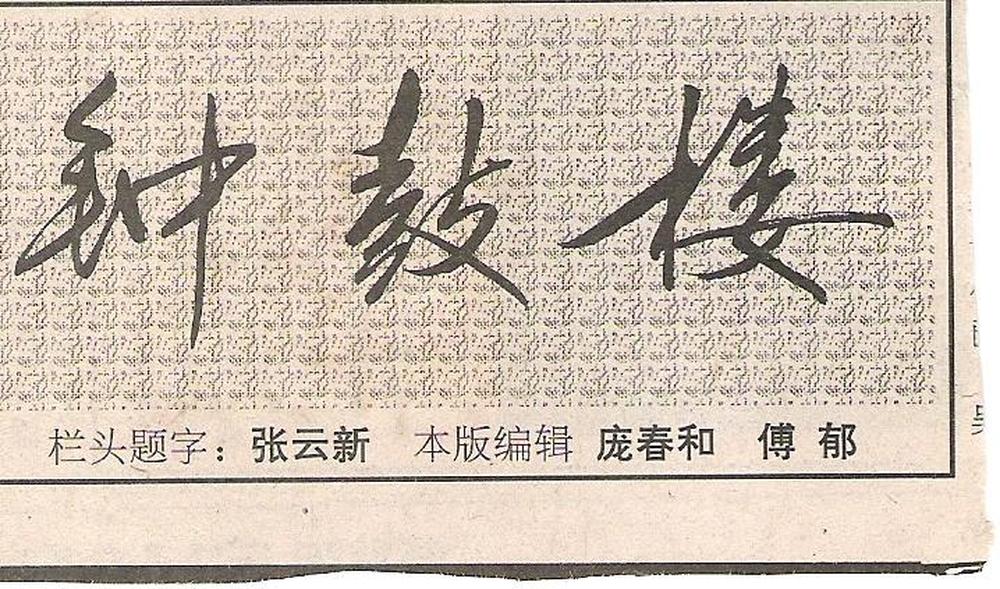 钟鼓楼
栏头题字：张云新 本版编辑 庞春和 傅 郁